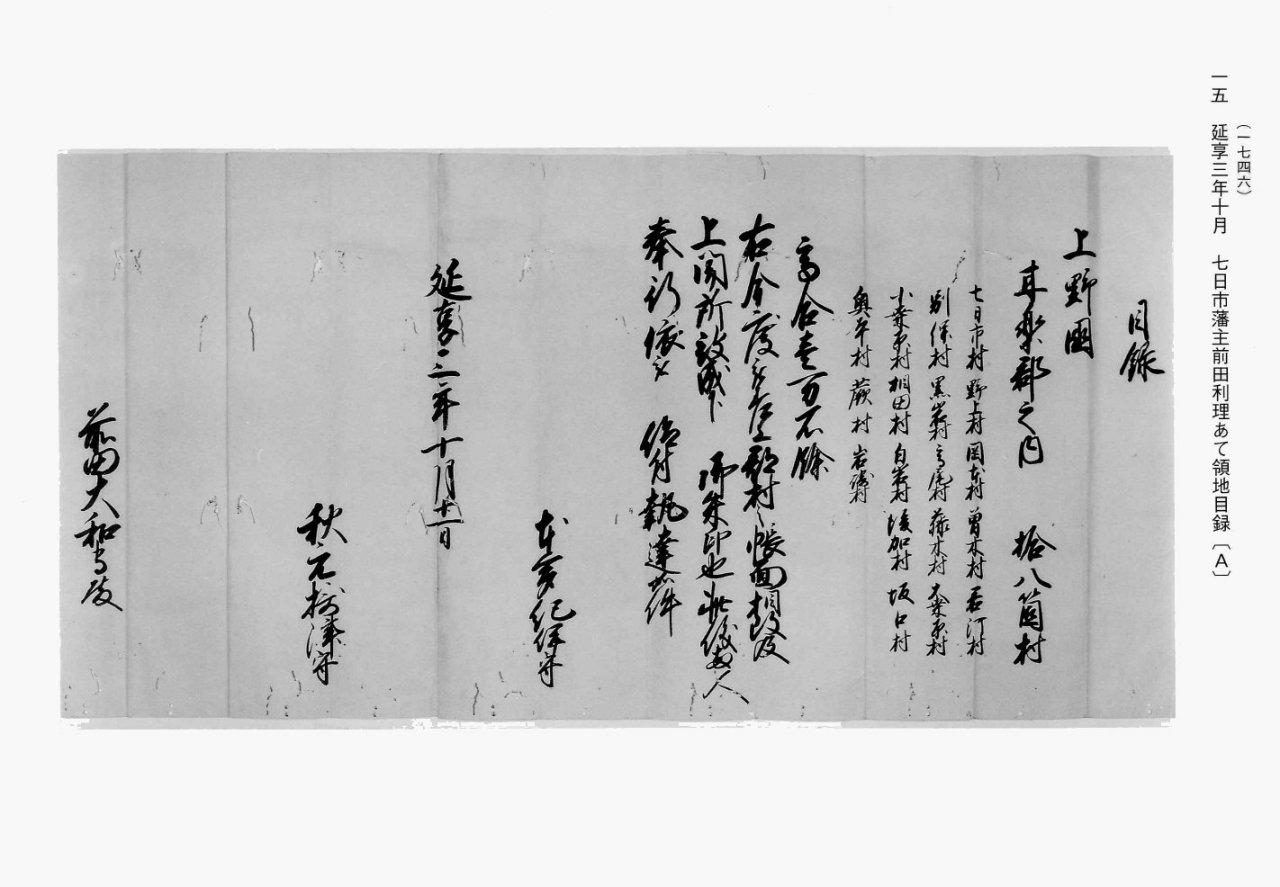 (一七四六)
一五 延享三年十月 七日市藩主前田利理あて領地目録〔A〕
目録
上野國
甘楽郡之内 拾八箇村
七日市村 野上村 岡本村 曽木村
別保村 黒岩村 高尾村 藤木村 大桑原村
小桑原村 相田村 白岩村 後賀村 坂口村
奥平村 蕨村 岩崎村
高合壱万石餘
右今度被差上郡村之帳面相改及
上聞所被成下 御朱印也此儀両人
奉行依被 仰付執達如件
延享三年十月十一日
本多紀伊守
秋元摂津守
前田大和守殿